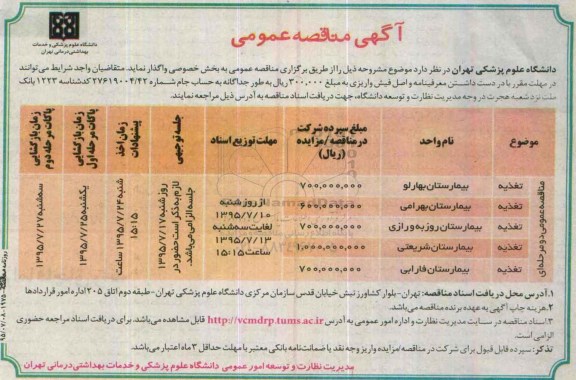 آگهی مناقصه عمومی
دانشگاه علوم پزشکی و خدمات
بهداشتی درمانی تهران
دانشگاه علوم پزشکی تهران در نظر دارد موضوع مشروحه ذیل را از طریق برگزاری مناقصه عمومی به بخش خصوصی واگذار نماید. متقاضیان واجد شرایط می توانند
در مهلت مقرر با در دست داشتن معرفینامه و اصل فیش واریزی به مبلغ ۳۰۰,۰۰۰ ریال به طور جداگانه به حساب جام شماره ۲۷۶۱۹۰۰۴/۴۲ کد شناسه ۱۲۲۳ بانک
ملت نزد شعبه هجرت در وجه مدیریت نظارت و توسعه دانشگاه، جهت دریافت اسناد مناقصه به آدرس ذیل مراجعه نمایند.
موضوع
نام واحد
مبلغ سپرده شرکت در مناقصه/مزایده (ریال)
مهلت توزیع اسناد
جلسه توجیهی
زمان اخذ پیشنهادات
زمان بازگشایی پاکات مرحله اول
زمان بازگشایی پاکات مرحله دوم
مناقصه عمومی دو مرحله ای
تغذیه بیمارستان بهارلو ۷۰۰,۰۰۰,۰۰۰
تغذیه بیمارستان بهرامی ۶۰۰,۰۰۰,۰۰۰
تغذیه بیمارستان روزبه و رازی ۷۰۰,۰۰۰,۰۰۰
تغذیه بیمارستان شریعتی ۱,۰۰۰,۰۰۰,۰۰۰
تغذیه بیمارستان فارابی ۷۰۰,۰۰۰,۰۰۰
از روز شنبه
۱۳۹۵/۷/۱۰
لغایت سه شنبه
۱۳۹۵/۷/۱۳
ساعت ۱۵:۱۵
روز شنبه ۱۳۹۵/۷/۱۷
لازم به ذکر است حضور در
جلسه الزامی می باشد.
شنبه ۱۳۹۵/۷/۲۴ ساعت
۱۵:۱۵
یکشنبه ۱۳۹۵/۷/۲۵
سه شنبه ۱۳۹۵/۷/۲۷
۱. آدرس محل دریافت اسناد مناقصه: تهران-بلوار کشاورز نبش خیابان قدس سازمان مرکزی دانشگاه علوم پزشکی تهران-طبقه دوم اتاق ۲۰۵ اداره امور قراردادها
۲. هزینه چاپ آگهی به عهده برنده مناقصه می باشد.
۳. اسناد مناقصه در سایت مدیریت نظارت و اداره امور عمومی به آدرس http://vcmdrp.tums.ac.ir قابل مشاهده می باشد. برای دریافت اسناد مراجعه حضوری
الزامی است
تذکر: سپرده قابل قبول برای شرکت در مناقصه/مزایده واریز وجه نقد یا ضمانت نامه بانکی معتبر با مهلت حداقل ۳ ماه اعتبار می باشد.
مدیریت نظارت و توسعه امور عمومی دانشگاه علوم پزشکی و خدمات بهداشتی درمانی تهران